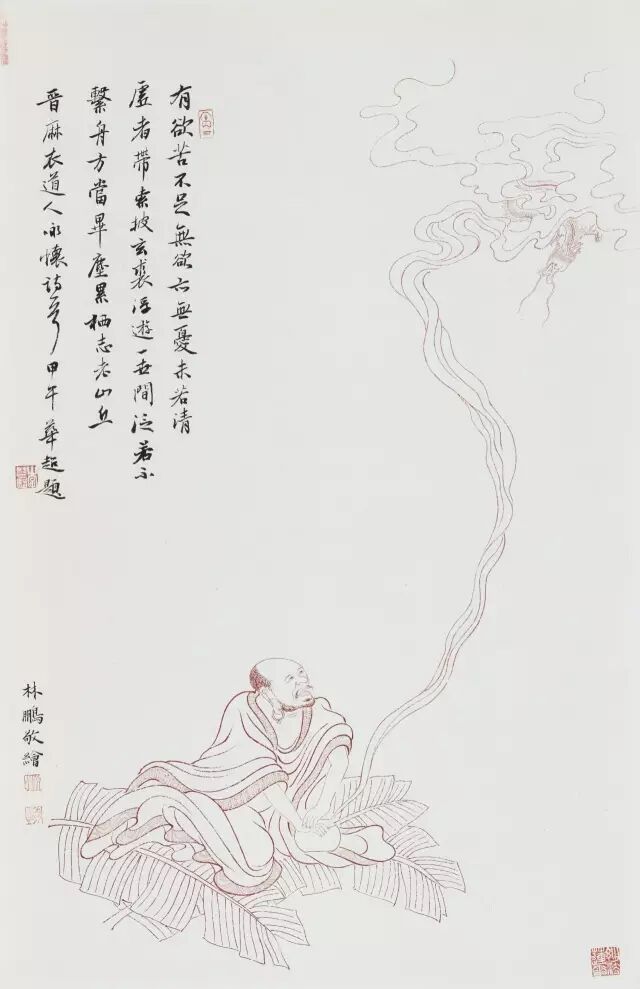 有欲苦不足無欲亦無憂未若清
虛者帶索披玄裘浮遊一世間泛若不
繫舟方當畢塵累栖志老山丘
晉麻衣道人詠懷詩 甲午華超題
林鵬敬繪